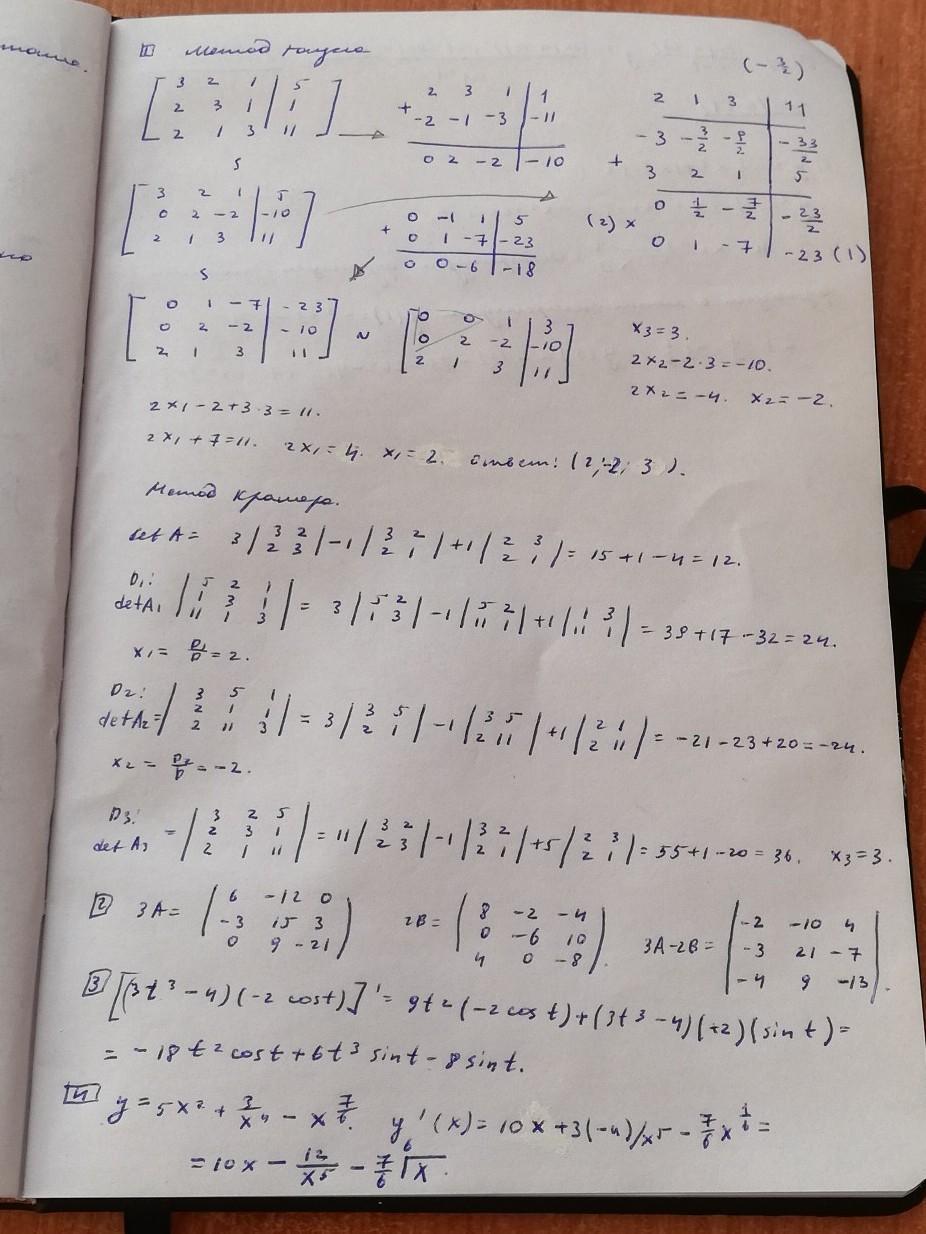 1 Метод Гаусса
[ 3 2 1 | 5 ]
[ 2 3 1 | 1 ]
[ 2 1 3 | 11 ]
+
2 3 1 | 1
-2 -1 -3 | -11
0 2 -2 | -10
(-3/2)
2 1 3 | 11
+
-3 -3/2 -9/2 | -33/2
3 2 1 | 5
(2) × 0 1/2 -7/2 | -23/2
0 1 -7 | -23 (1)
[ 3 2 1 | 5 ]
[ 0 2 -2 | -10 ]
[ 2 1 3 | 11 ]
+
0 -1 1 | 5
0 1 -7 | -23
0 0 -6 | -18
[ 0 1 -7 | -23 ]
[ 0 2 -2 | -10 ]
[ 2 1 3 | 11 ]
~
[ 0 0 1 | 3 ]
[ 0 2 -2 | -10 ]
[ 2 1 3 | 11 ]
x3 = 3.
2x2 - 2·3 = -10.
2x2 = -4. x2 = -2.
2x1 - 2 + 3·3 = 11.
2x1 + 7 = 11. 2x1 = 4. x1 = 2. ответ: (2; -2; 3).
Метод Крамера.
det A = 3 |3 2; 2 3| - 1 |3 2; 2 1| + 1 |2 3; 2 1| = 15 + 1 - 4 = 12.
D1:
det A1 |5 2 1; 1 3 1; 11 1 3| = 3 |5 2; 1 3| - 1 |5 2; 11 1| + 1 |1 3; 11 1| = 39 + 17 - 32 = 24.
x1 = D1/D = 2.
D2:
det A2 = |3 5 1; 2 1 1; 2 11 3| = 3 |3 5; 2 1| - 1 |3 5; 2 11| + 1 |2 1; 2 11| = -21 - 23 + 20 = -24.
x2 = D2/D = -2.
D3:
det A3 = |3 2 5; 2 3 1; 2 1 11| = 11 |3 2; 2 3| - 1 |3 2; 2 1| + 5 |2 3; 2 1| = 55 + 1 - 20 = 36. x3 = 3.
2 3A = (6 -12 0; -3 15 3; 0 9 -21) 2B = (8 -2 -4; 0 -6 10; 4 0 -8). 3A-2B = |-2 -10 4; -3 21 -7; -4 9 -13|.
3 [(3t³ - 4)(-2 cos t)]' = 9t²(-2 cos t) + (3t³ - 4)(+2)(sin t) =
= -18t² cos t + 6t³ sin t - 8 sin t.
4 y = 5x² + 3/x⁴ - x^(7/6). y'(x) = 10x + 3(-4)/x⁵ - 7/6 x^(1/6) =
= 10x - 12/x⁵ - 7/6 ⁶√x.